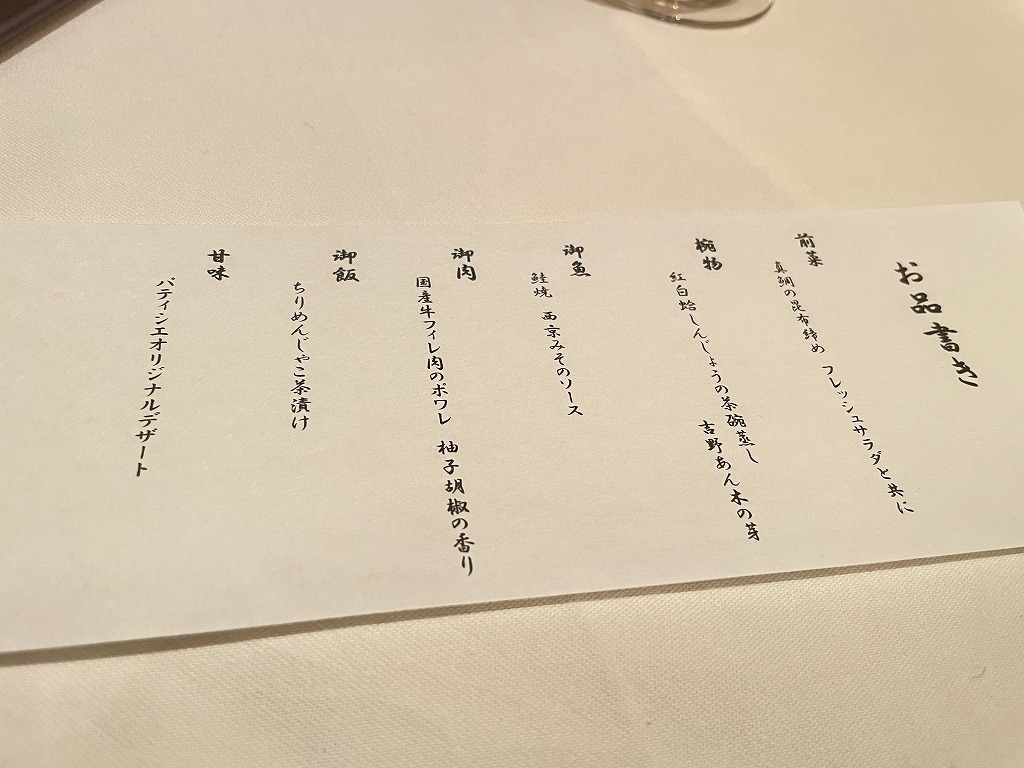 お品書き
前菜
真鯛の昆布締め　フレッシュサラダと共に
椀物
紅白蛤しんじょうの茶碗蒸し
吉野あん木の芽
御魚
鮭焼　西京みそのソース
御肉
国産牛フィレ肉のポワレ　柚子胡椒の香り
御飯
ちりめんじゃこ茶漬け
甘味
パティシエオリジナルデザート